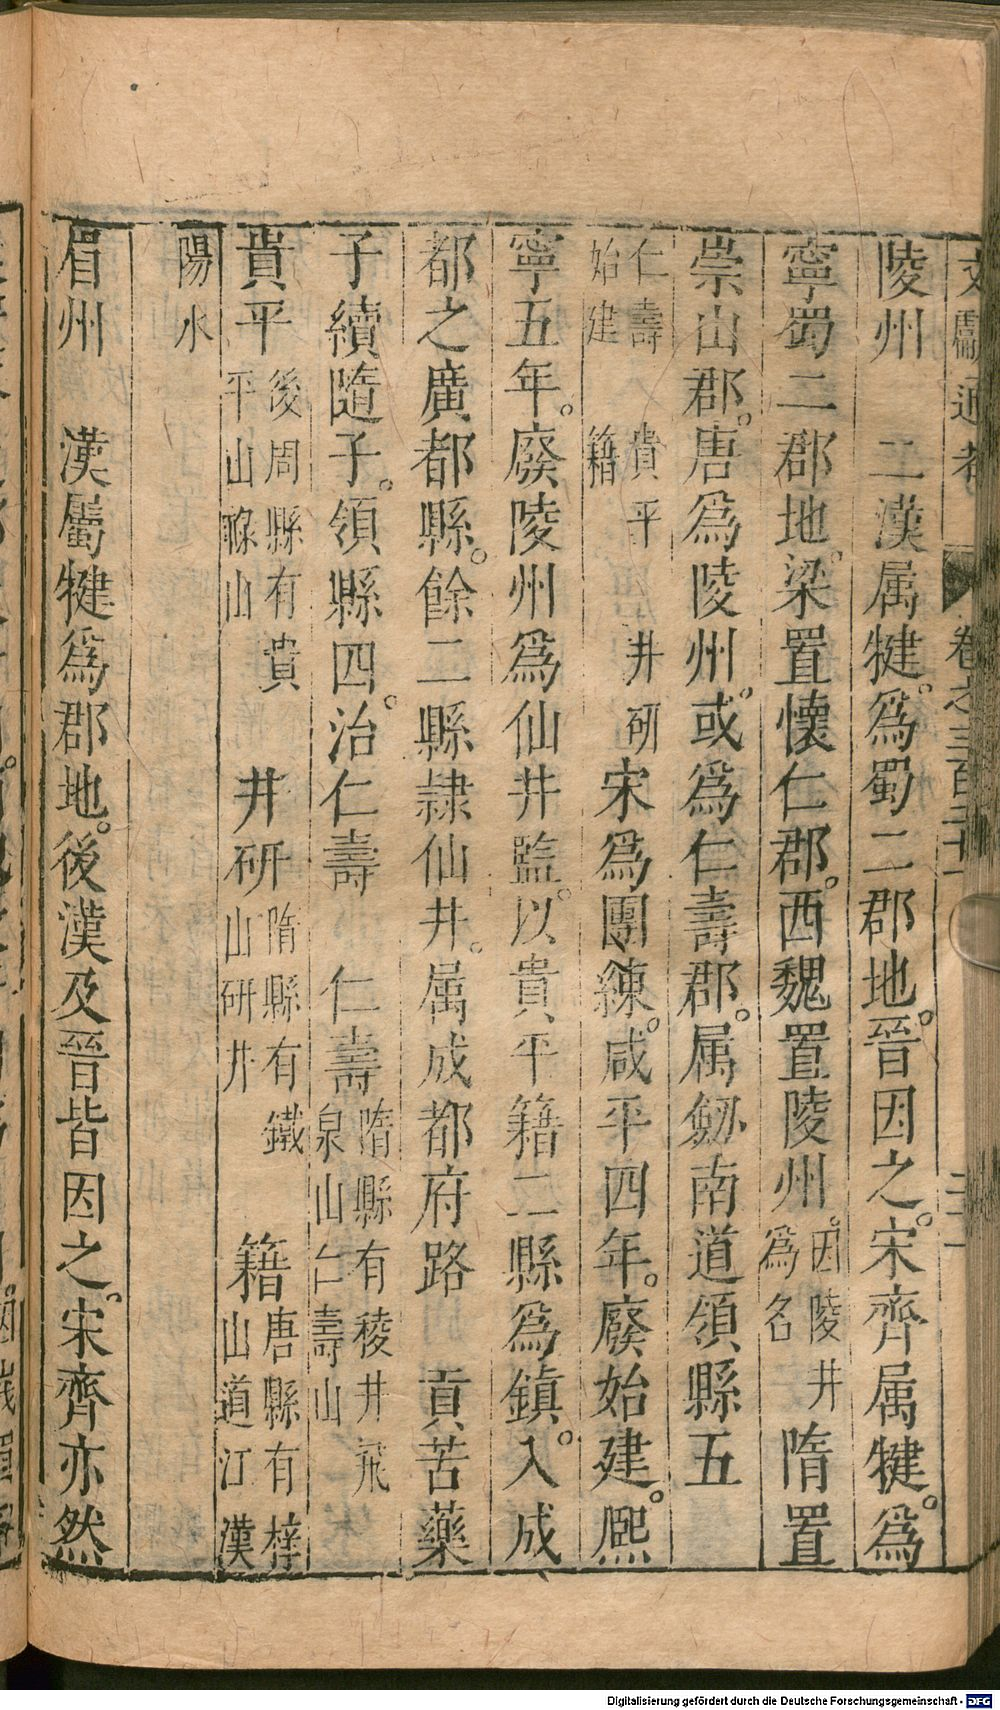 文獻通考 卷之三百二十一 二十一
陵州 二漢属犍。爲蜀二郡地。晉因之。宋齊属犍。爲
寧蜀二郡地。梁置懷仁郡。西魏置陵州。因陵井爲名 隋置
崇山郡。唐爲陵州。或爲仁壽郡。属劔南道領縣五
仁壽 貴平 井研 始建 籍 宋爲團練。咸平四年。廢始建。熈
寧五年。廢陵州爲仙井監。以貴平籍二縣爲鎮。入成
都之廣都縣。餘二縣隷仙井。属成都府路 貢苦藥
子續隨子。領縣四。治仁壽 仁壽 隋縣有稜井飛泉山仁壽山
貴平 後周縣有貴平山祿山 井研 隋縣有鐵山研井 籍 唐縣有梓山道江漢
陽水
眉州 漢屬犍爲郡地。後漢及晉皆因之。宋齊亦然
Digitalisierung gefördert durch die Deutsche Forschungsgemeinschaft - DFG